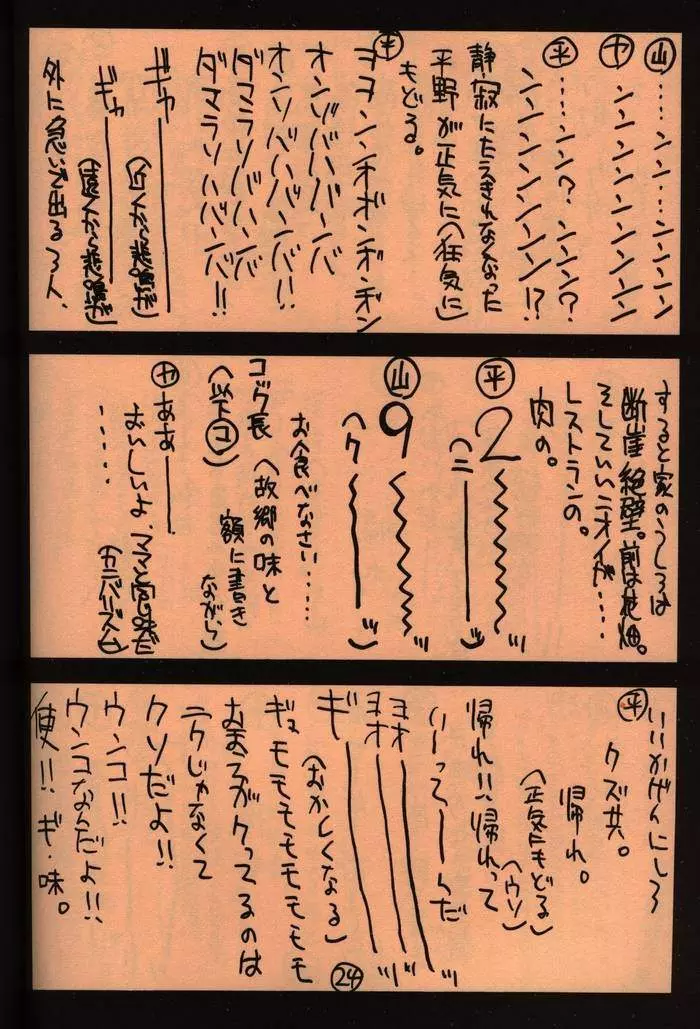 ㊤山 ‥‥ンン‥ンンンン
ヤ ンンンンンンンン
平 ‥‥ンン?ンンン?
ンンンンンンンン!?
静寂にたえきれなくなった
平野が正気に(狂気に)
もどる。
平 ヨヨンンオボンボン
オンゾババーバ
オンソバババーバ!!
ダマラソババーバ
ダマラソハバーバ!!
ギャ――――
(近くから悲鳴が)
ギャ――――
(遠くから悲鳴が)
外に急いで出る3人、
すると家のうしろは
断崖絶壁。前は花畑。
そしていいニオイが‥‥
レストランの。
肉の。
平 2 〰〰ッ
(ニ――ッ)
山 9 〰〰ッ
(ク――ッ)
お食べなさい‥‥
コック長(故郷の味と
額に書き
ながら)
(以下コ)
ヤ ああ――
おいしいよ、ママと宮の味だ
(カニバリズム)
‥‥‥
平 いいかげんにしろ
クズ共。
帰れ。
(正気にもどる)
(ウソ)
帰れ!!帰れって
いーってーーんだ
ヨオ――――ッ
ヨオ――――ッ
ギ――――ッ
(おかしくなる)
ギュモモモモモモモ
おまえがクってるのは
ニクじゃなくて
クソだよ!!
ウンコ!!
ウンコなんだよ!!
便!!ギ・味。
24